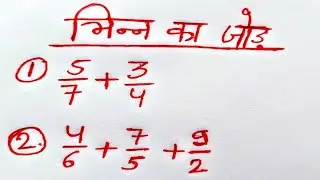 भिन्न का जोड़
① 5/7 + 3/4
②. 4/6 + 7/5 + 9/2